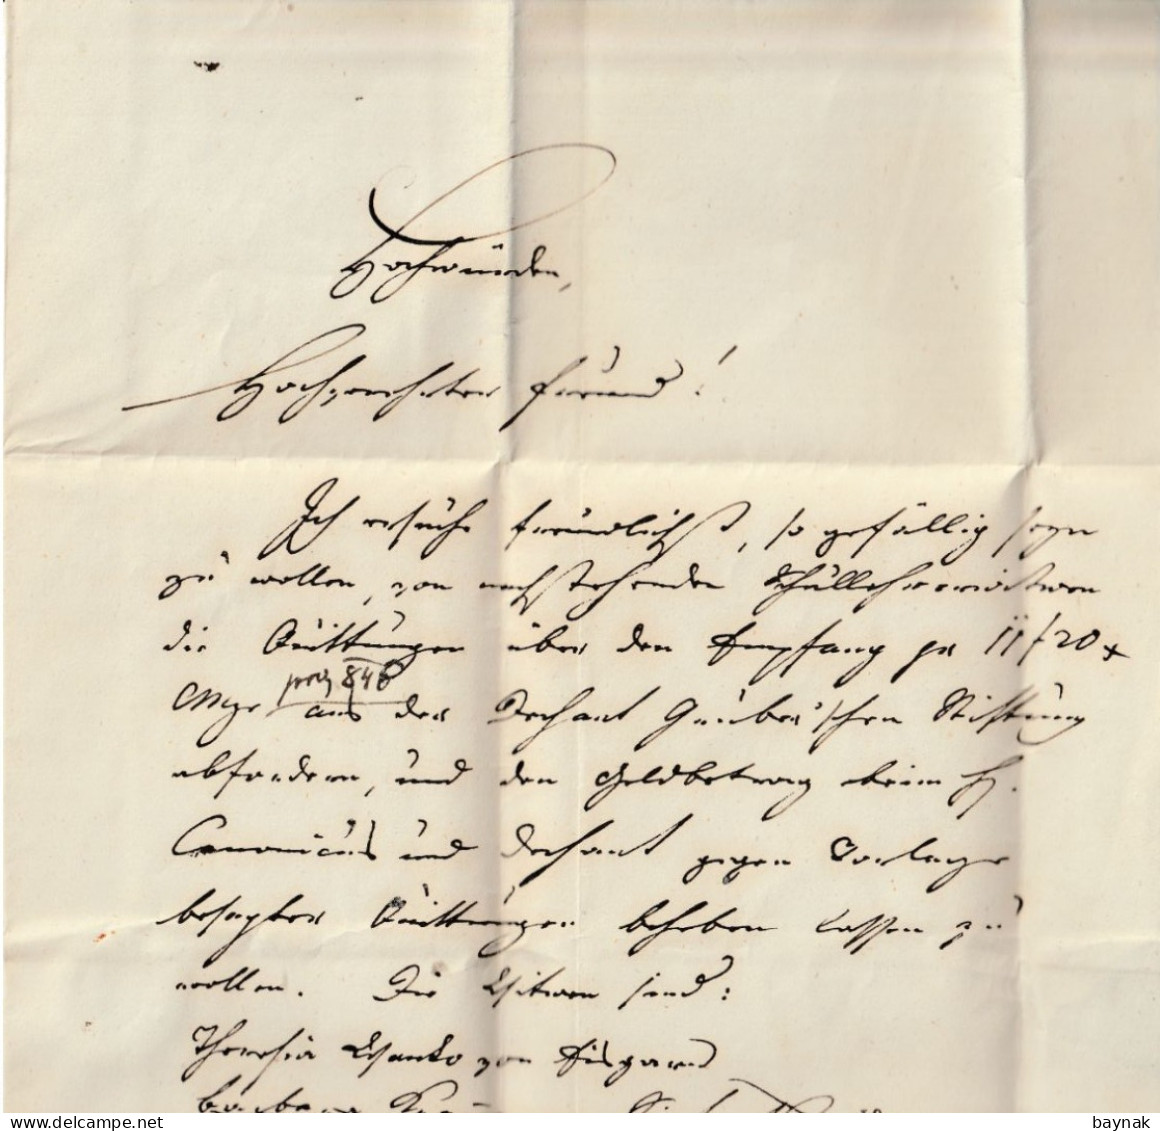 Hochwürden,
Hochverehrter Freund!
Ich ersuche freundlichst, so gefällig seyn
zu wollen, von nachstehenden Schullehrerwitwen
die Quittungen über den Empfang pr 11 f 20 x
848
CMze aus der Dechant Gruber'schen Stiftung
abfordern, und den Geldbetrag beim H.
Canonicus und Dechant gegen Vorlage
besagter Quittungen beheben lassen zu
wollen. Die Witwen sind:
Theresia Wanko von Eisgarn
Barbara
baynak